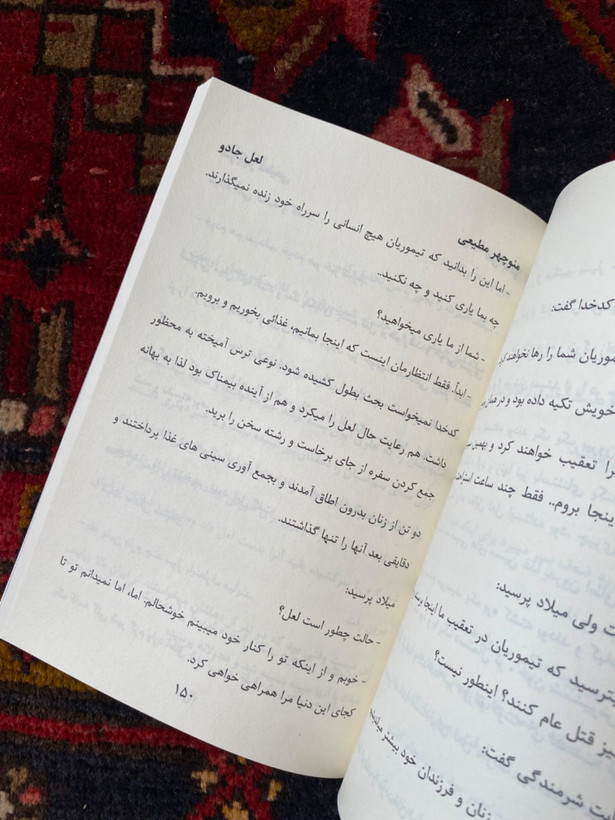 منوچهر مطیعی
لعل جادو
- اما این را بدانید که تیموریان هیچ انسانی را سرراه خود زنده نمیگذارند.
چه بما یاری کنید و چه نکنید.
- شما از ما یاری میخواهید؟
- ابداً. فقط انتظارمان اینست که اینجا بمانیم، غذائی بخوریم و برویم.
کدخدا نمیخواست بحث بطول کشیده شود. نوعی ترس آمیخته به محظور
داشت. هم رعایت حال لعل را میکرد و هم از آینده بیمناک بود لذا به بهانه
جمع کردن سفره از جای برخاست و رشته سخن را برید.
دو تن از زنان بدرون اطاق آمدند و بجمع آوری سینی های غذا پرداختند و
دقایقی بعد آنها را تنها گذاشتند.
میلاد پرسید:
- حالت چطور است لعل؟
- خوبم و از اینکه تو را کنار خود میبینم خوشحالم. اما، اما نمیدانم تو تا
کجای این دنیا مرا همراهی خواهی کرد.
۱۵۰
کدخدا گفت:
موریان شما را رها نخواهند
خویش تکیه داده بود و در
را تعقیب خواهند کرد و
ینجا بروم.. فقط چند ساعت
ت ولی میلاد پرسید:
یترسید که تیموریان در تعقیب ما اینجا
یز قتل عام کنند؟ اینطور نیست؟
ت شرمندگی گفت:
زنان و فرزندان خود بیشتر